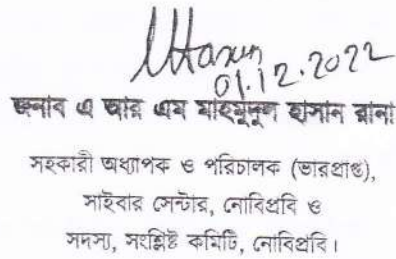 MHasan
01.12.2022
জনাব এ আর এম মাহমুদুল হাসান রানা
সহকারী অধ্যাপক ও পরিচালক (ভারপ্রাপ্ত),
সাইবার সেন্টার, নোবিপ্রবি ও
সদস্য, সংশ্লিষ্ট কমিটি, নোবিপ্রবি।